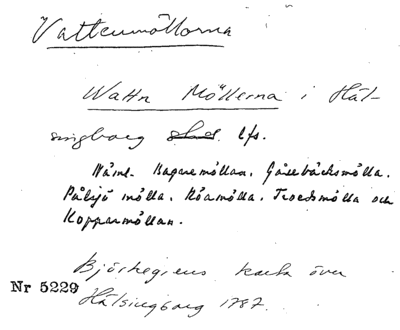 Vattenmöllorna
Wattn Möllerna i Häl-
singborg lfs.
Näml. Bagaremöllan, Gåsebäcksmölla,
Pålsjö mölla, Röamölla, Troedsmölla och
Kopparmöllan.
Björkegrens karta över
Nr 5229
Hälsingborg 1787.